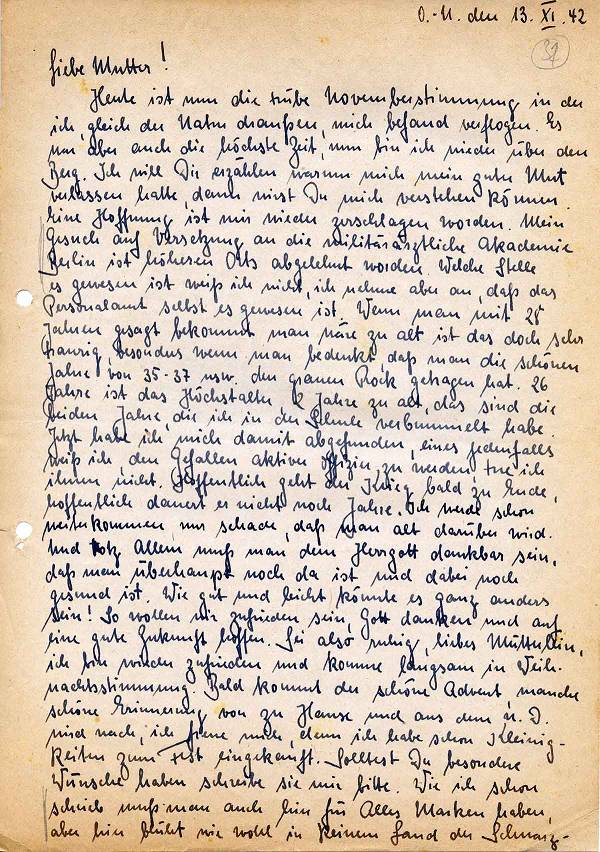 O.-U. den 13. XI. 42
37
Liebe Mutter!
Heute ist nun die trübe Novemberstimmung in der
ich, gleich der Natur draußen, mich befand verflogen. Es
war aber auch die höchste Zeit, nun bin ich wieder über den
Berg. Ich will Dir erzählen warum mich mein guter Mut
verlassen hatte, dann wirst Du mich verstehen können.
Eine Hoffnung ist mir wieder zerschlagen worden. Mein
Gesuch auf Versetzung an die militärärztliche Akademie
Berlin ist höheren Orts abgelehnt worden. Welche Stelle
es gewesen ist weiß ich nicht, ich nehme aber an, daß das
Personalamt selbst es gewesen ist. Wenn man mit 28
Jahren gesagt bekommt man wäre zu alt ist das doch sehr
traurig, besonders wenn man bedenkt, daß man die schönen
Jahre von 35-37 usw. den grauen Rock getragen hat. 26
Jahre ist das Höchstalter, 2 Jahre zu alt, das sind die
beiden Jahre, die ich in der Schule verbummelt habe.
Jetzt habe ich mich damit abgefunden, eines jedenfalls
weiß ich, den Gefallen aktiver Offizier zu werden, tue ich
ihnen nicht. Hoffentlich geht der Krieg bald zu Ende,
hoffentlich dauert es nicht noch Jahre. Ich werde schon
weiterkommen, nur schade, daß man alt darüber wird.
Und trotz Allem muß man dem Herrgott dankbar sein,
daß man überhaupt noch da ist und dabei noch
gesund ist. Wie gut und leicht könnte es ganz anders
sein! So wollen wir zufrieden sein, Gott danken und auf
eine gute Zukunft hoffen. Sei also ruhig, liebes Mütterlein,
ich bin wieder zufrieden und komme langsam in Weih-
nachtsstimmung. Bald kommt der schöne Advent, manche
schöne Erinnerung von zu Hause und aus dem
wird wach, ich freue mich, denn ich habe schon Kleinig-
keiten zum Fest eingekauft. Solltest Du besondere
Wünsche haben schreibe sie mir bitte. Wie ich schon
schrieb muß man auch hier für Alles Marken haben,
aber hier blüht wie wohl in keinem Land der Schwarz-